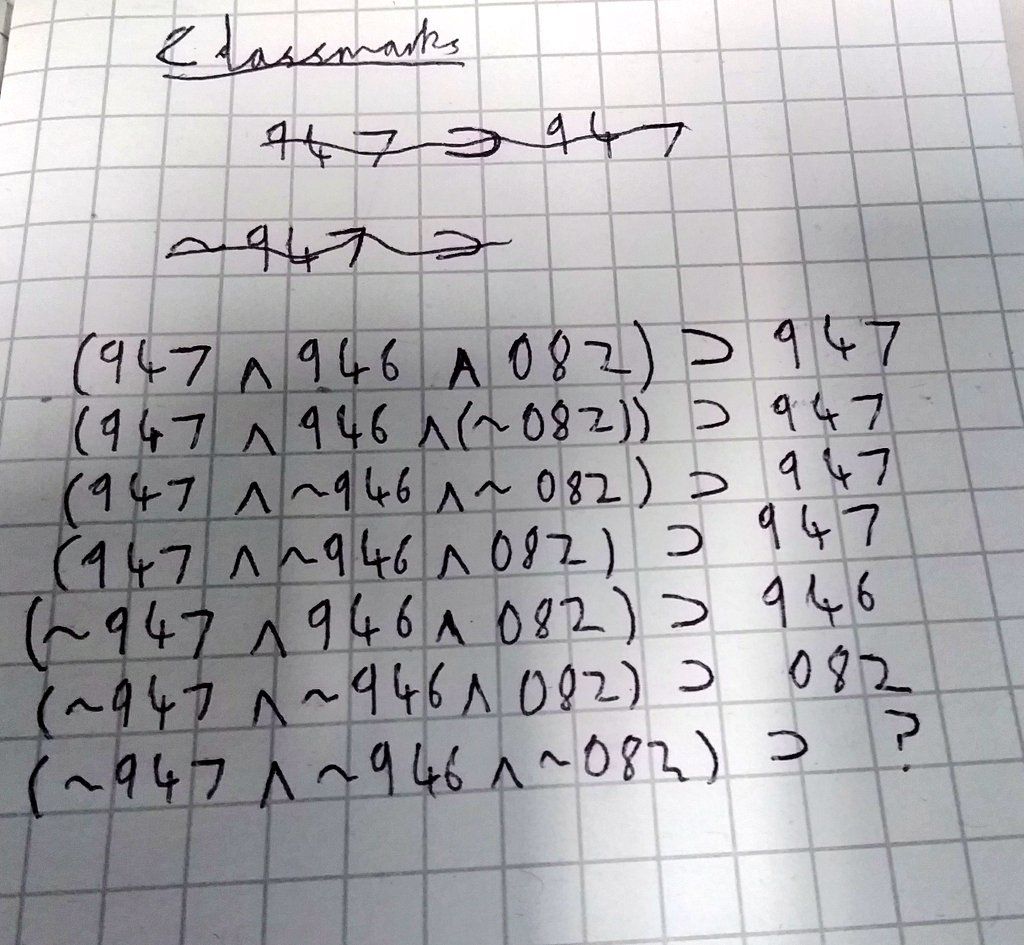 Classmarks
947 ⊃ 947
~947 ⊃
(947 ∧ 946 ∧ 082) ⊃ 947
(947 ∧ 946 ∧(~082)) ⊃ 947
(947 ∧ ~946 ∧ ~ 082) ⊃ 947
(947 ∧ ~946 ∧ 082) ⊃ 947
(~947 ∧ 946 ∧ 082) ⊃ 946
(~947 ∧ ~946 ∧ 082) ⊃ 082
(~947 ∧ ~946 ∧ ~082) ⊃ ?